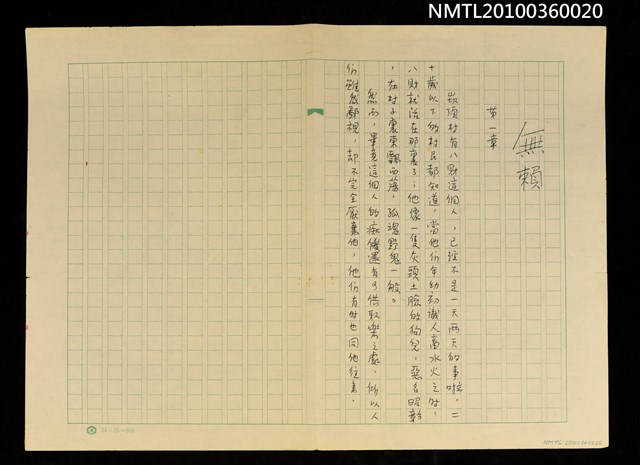 NMTL20100360020
無賴
第一章
崁頂村有八財這個人，已經不是一天兩天的事啦，二
十歲以下的村民都知道，當他們年幼初識人畜水火之時，
八財就活在那裏了；他像一隻灰頭土臉的狗兒，惡名昭彰
，在村子裏東飄西蕩，孤魂野鬼一般。
然而，畢竟這個人的痴傻還有可供取樂之處，所以人
們雖然鄙視，却不完全厭棄他，他們有時也同他往來。
24×25=600
NMTL20100360020